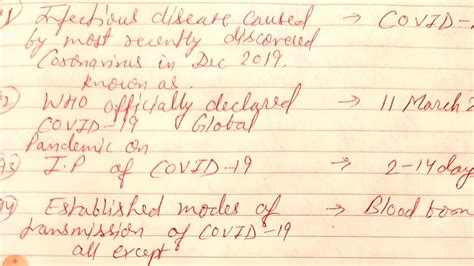 Infectious disease caused → COVID-
by most recently discovered
Coronavirus in Dec 2019.
known as
WHO officially declared → 11 March 2
COVID-19 Global
Pandemic on
I.P of COVID-19 → 2-14 day
Established modes of → Blood born
transmission of COVID-19
all except